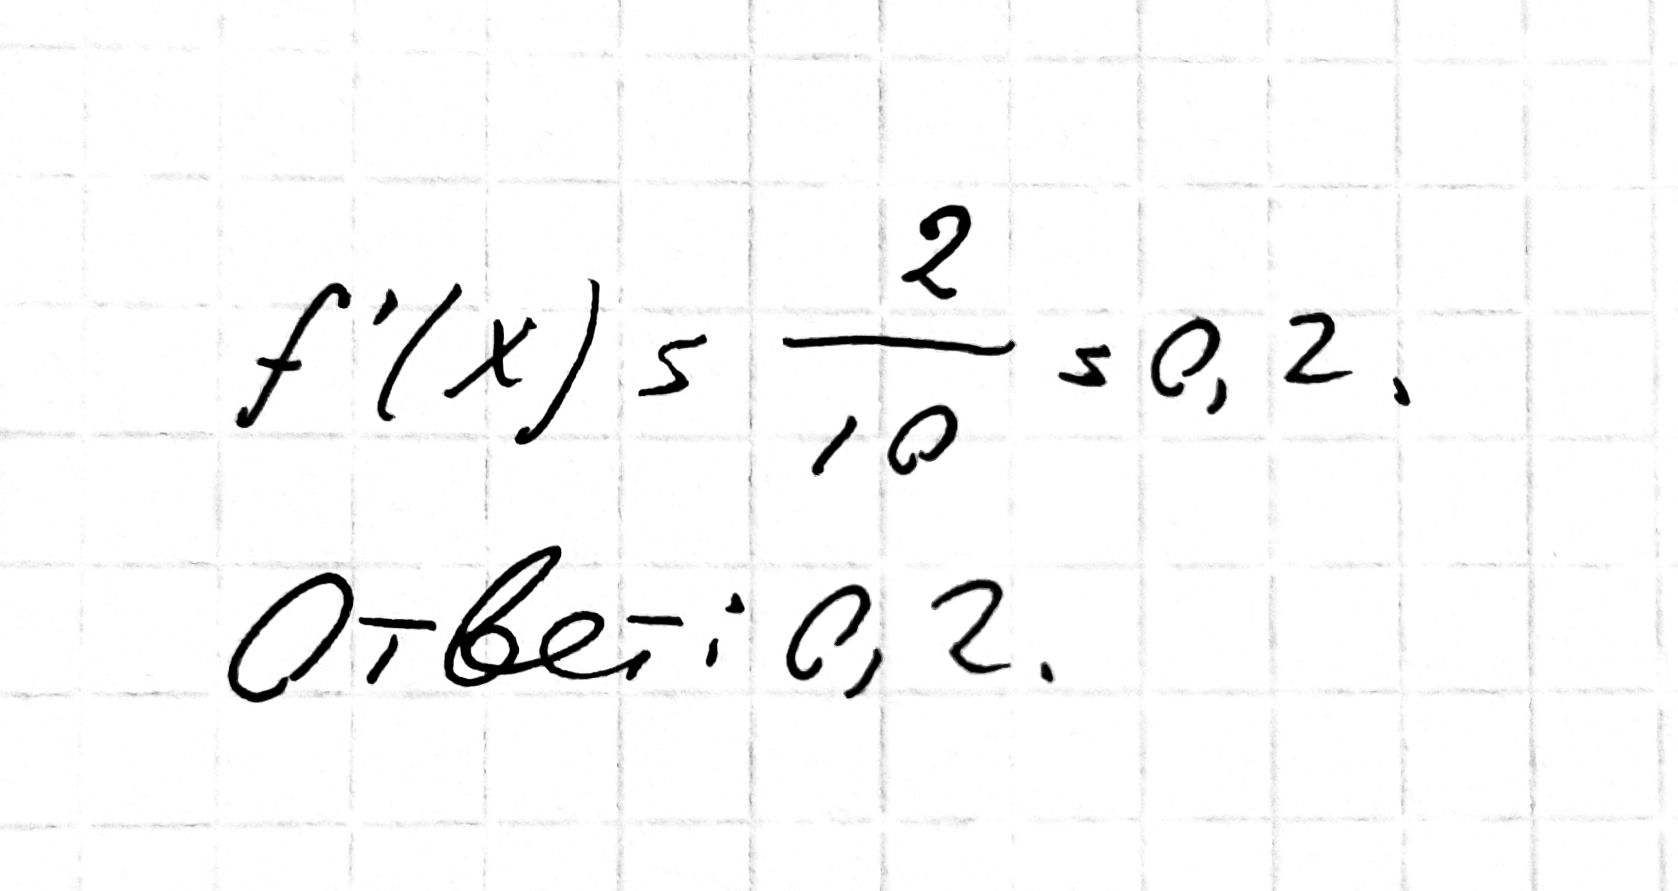 f'(x) = 2/10 = 0,2.
Ответ: 0,2.